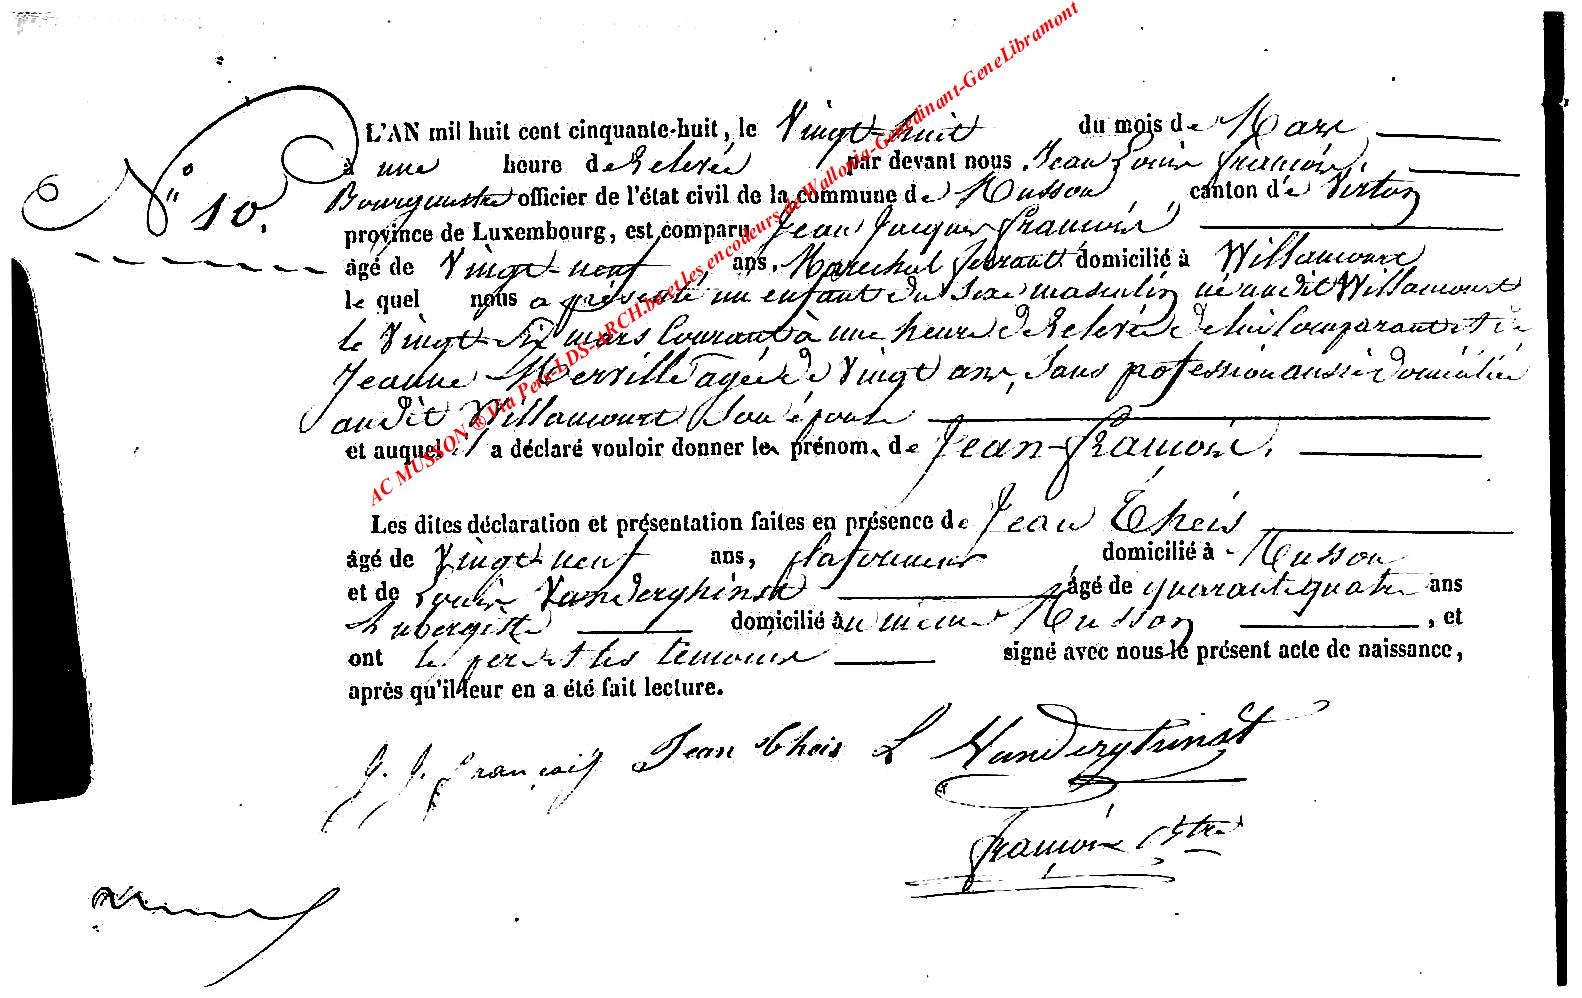 N° 10.
L'AN mil huit cent cinquante-huit, le Vingt-huit du mois de Mars
à une heure de Relevée par devant nous Jean Louis François,
Bourgmestre officier de l'état civil de la commune de Musson, canton de Virton
province de Luxembourg, est comparu Jean Jacques François
âgé de Vingt-neuf ans, Marechal ferrant domicilié à Willancourt
le quel nous a présenté un enfant du sexe masculin né audit Willancourt
le Vingt-six mars Courant à une heure de Relevée de lui Comparant et de
Jeanne Merville agée de Vingt ans, Sans profession aussi domiciliée
audit Willancourt Son épouse
et auquel il a déclaré vouloir donner les prénoms de Jean-François.
Les dites déclaration et présentation faites en présence de Jean Theis
âgé de Vingt-neuf ans, plafonneur domicilié à Musson
et de Louis Vanderghinst âgé de quarante quatre ans
Aubergiste domicilié au même Musson, et
ont le père et les témoins signé avec nous le présent acte de naissance,
après qu'il leur en a été fait lecture.
J. J. François Jean Theis L Vanderghinst
François Bstre
AC MUSSON ® Via Petit-LDS-ARCH.be et les encodeurs de Wallonia-Genedinant-GeneLibramont